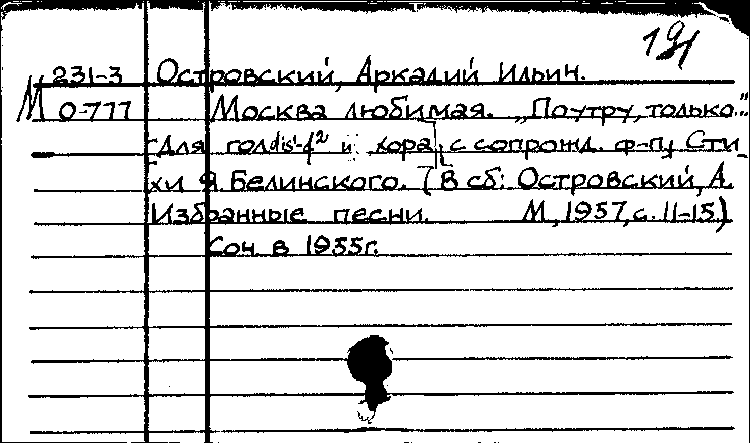 191
231-3 Островский, Аркадий Ильич.
М О-777 Москва любимая. „Поутру, только..."
Для гол. dis¹-f² и хора, с сопрожд. ф-п. Сти-
хи Я. Белинского. (В сб: Островский, А.
Избранные песни. М, 1957, с. 11-15.)
Соч. в 1955г.